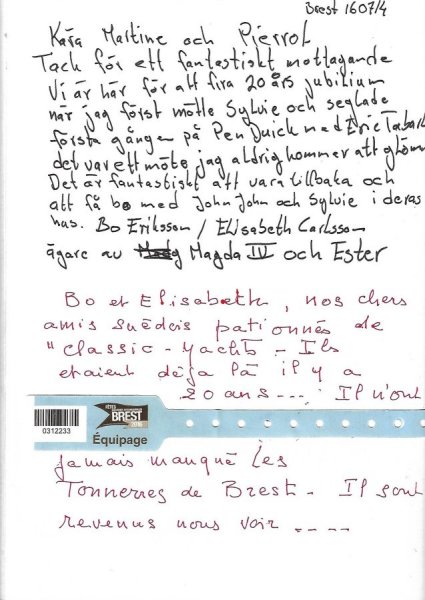 Brest 160714
Kära Martine och Pierrot
Tack för ett fantastiskt mottagande
Vi är här för att fira 20 års jubilium
när jag först mötte Sylvie och seglade
första gången på Pen Duick med Eric Tabarl
det var ett möte jag aldrig kommer att glöm
Det är fantastiskt att vara tillbaka och
att få bo med John John och Sylvie i deras
hus. Bo Eriksson / Elisabeth Carlsson
ägare av Magda IV och Ester
Bo et Elisabeth, nos chers
amis suédois pationnés de
"Classic-Yachts - Ils
etaient déja là il y a
20 ans.... Il n'ont
BREST
2016
0312233
Équipage
jamais manqué les
Tonnerres de Brest. Il sont
revenus nous voir ....